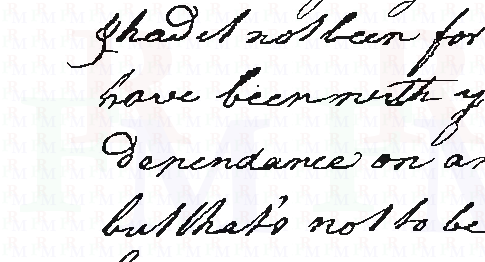 had it not been for
have been with y
dependance on an
but that's not to be